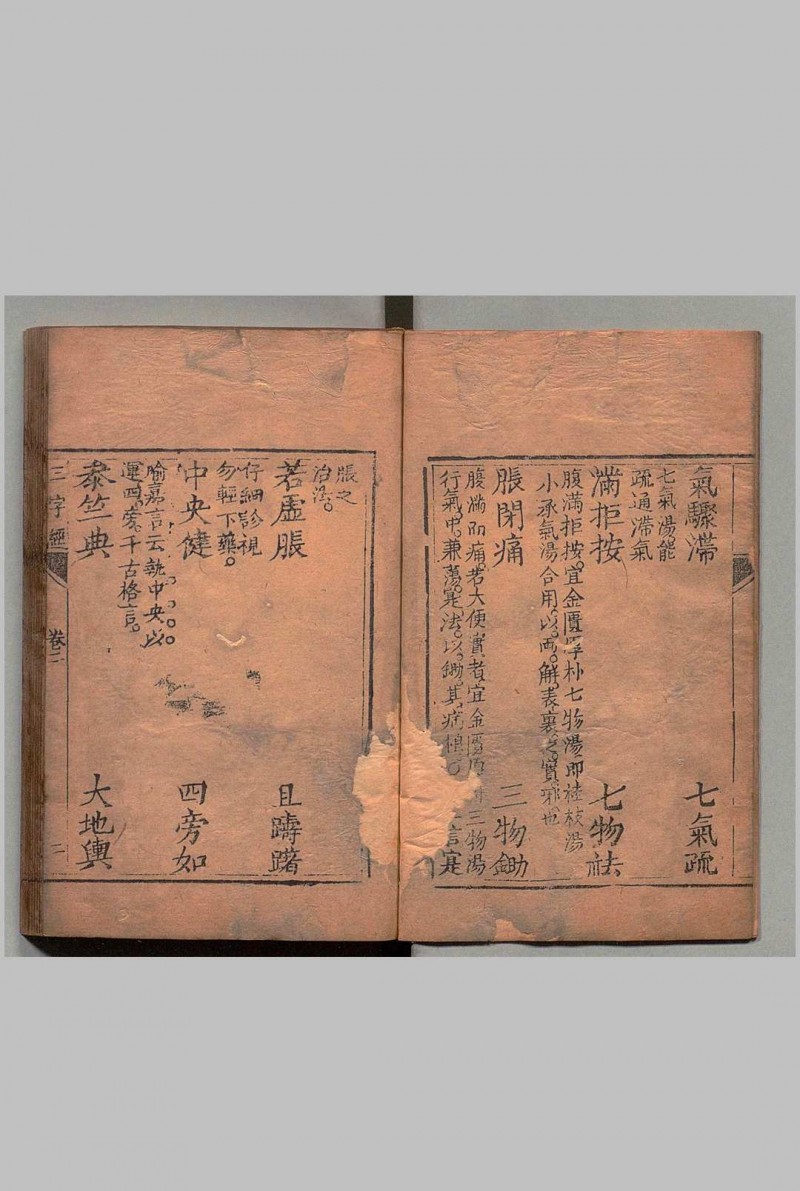 氣驟滯　七氣疏
七氣湯能
疏通滯氣
滿拒按　七物祛
腹滿拒按。宜金匱厚朴七物湯。即桂枝湯
小承氣湯合用。以兩解表裏之實邪也
脹閉痛　三物鋤
腹滿而痛。若大便實者。宜金匱厚 三物湯
行氣中。兼蕩寔法。以鋤其病根。 言寔
脹之
治法。
若虛脹　且躊躇
仔細診視
勿輕下藥。
中央健　四旁如
喻嘉言云執中央以
運四旁千古格言。
參竺典　大地輿
三字經　卷二　二